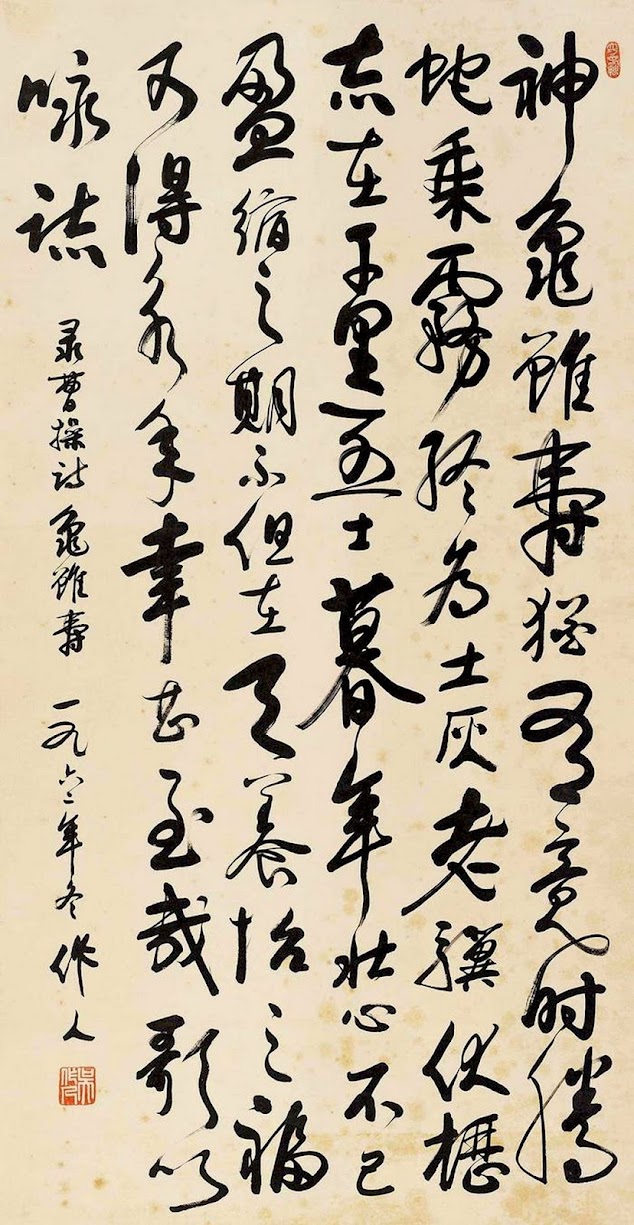 神龜雖壽猶有竟时騰
蛇乘霧終為土灰老驥伏櫪
志在千里烈士暮年壯心不已
盈縮之期不但在天養怡之福
可得永年幸甚至哉歌以
咏誌
录曹操詩龜雖壽 一九六二年冬 作人
吳作人